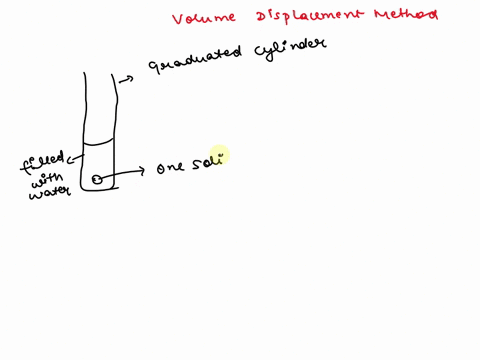 Volume Displacement Method
graduated cylinder
filled
with
water
one soli